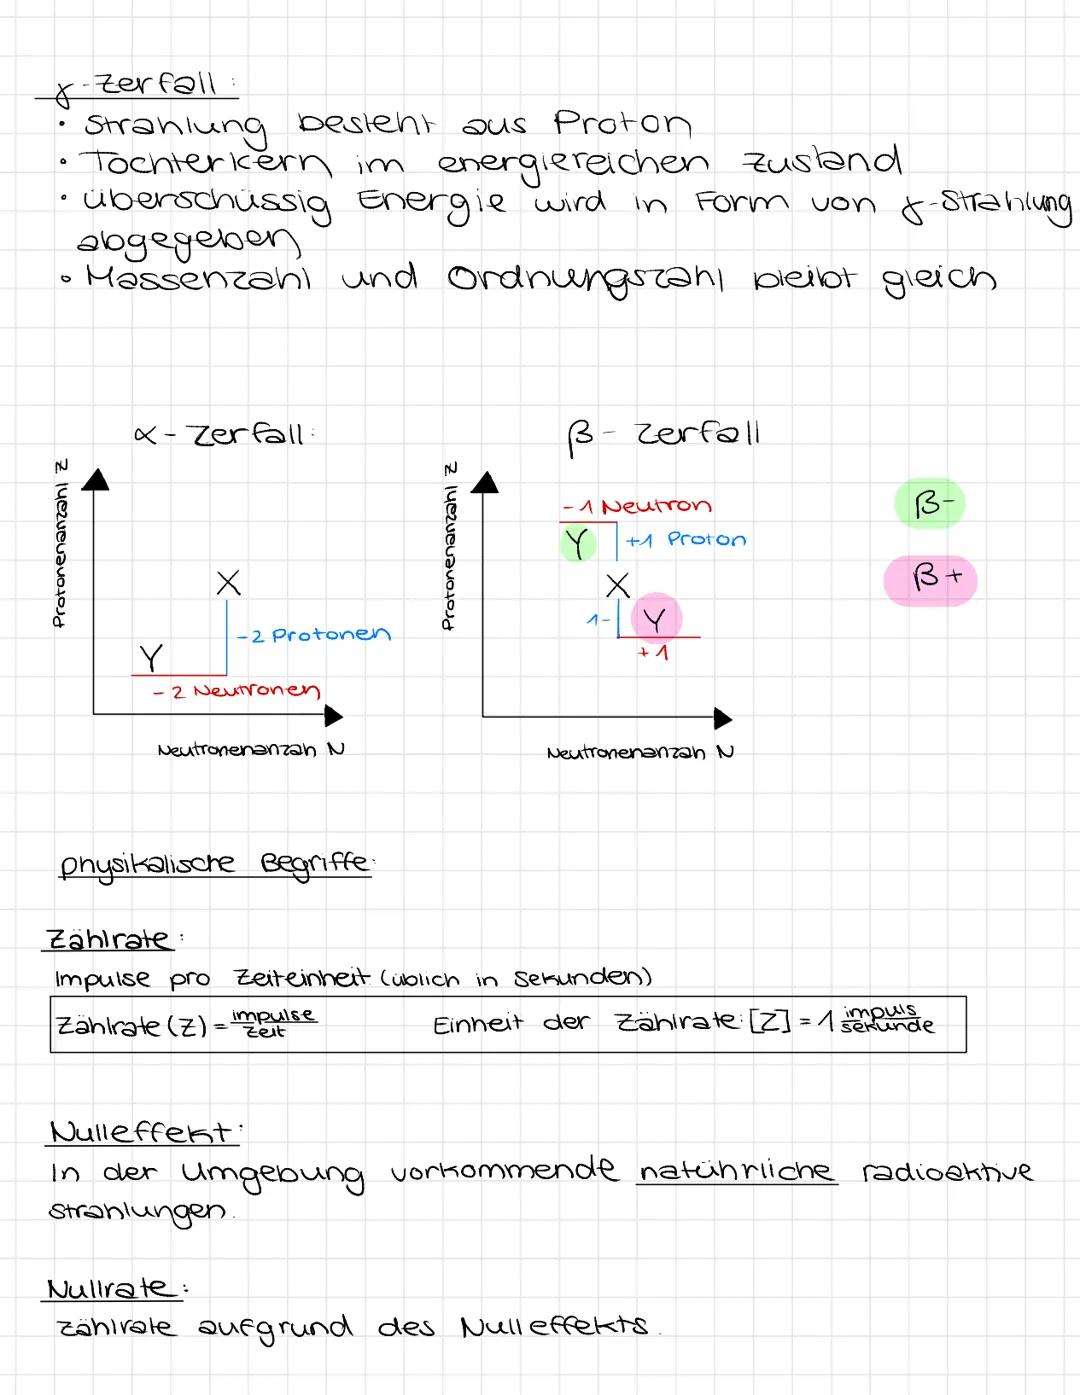 γ-Zerfall:
• Strahlung besteht aus Proton
• Tochterkern im energiereichen Zustand
• überschüssig Energie wird in Form von γ-Strahlung
abgegeben
• Massenzahl und Ordnungszahl bleibt gleich
α-Zerfall:
Protonenanzahl Z
X
-2 Protonen
Y
-2 Neutronen
Neutronenanzah N
β-Zerfall
Protonenanzahl Z
-1 Neutron
Y
+1 Proton
X
1-
Y
+1
Neutronenanzah N
β-
β+
physikalische Begriffe:
Zählrate:
Impulse pro Zeiteinheit (üblich in Sekunden)
Zählrate (Z) = impulse/Zeit Einheit der Zählrate: [Z] = 1 impuls/sekunde
Nulleffekt:
In der Umgebung vorkommende natührliche radioaktive
Strahlungen.
Nullrate:
Zählrate aufgrund des Nulleffekts.